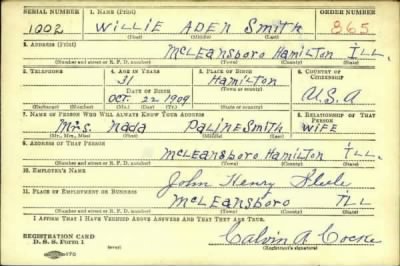 SERIAL NUMBER 1. NAME (Print) ORDER NUMBER
1002 WILLIE ADEN Smith 865
(First) (Middle) (Last)
2. ADDRESS (Print)
McLeansboro Hamilton ILL.
(Number and street or R. F. D. number) (Town) (County) (State)
3. TELEPHONE 4. AGE IN YEARS 5. PLACE OF BIRTH 6. COUNTRY OF CITIZENSHIP
31 Hamilton
DATE OF BIRTH (Town or county)
Oct. 22 1909 U.S.A
(Exchange) (No.) (Mo.) (Day) (Yr.) (State or country)
7. NAME OF PERSON WHO WILL ALWAYS KNOW YOUR ADDRESS 8. RELATIONSHIP OF THAT PERSON
Mrs. Nada Paline Smith WIFE
(Mr., Mrs., Miss) (First) (Middle) (Last)
9. ADDRESS OF THAT PERSON
McLeansboro Hamilton ILL.
(Number and street or R. F. D. number) (Town) (County) (State)
10. EMPLOYER'S NAME
John Henry
11. PLACE OF EMPLOYMENT OR BUSINESS
McLeansboro ILL
(Number and street or R. F. D. number) (Town) (County) (State)
I AFFIRM THAT I HAVE VERIFIED ABOVE ANSWERS AND THAT THEY ARE TRUE.
REGISTRATION CARD
D. S. S. Form 1 Calvin A
(over) (Registrar's signature)